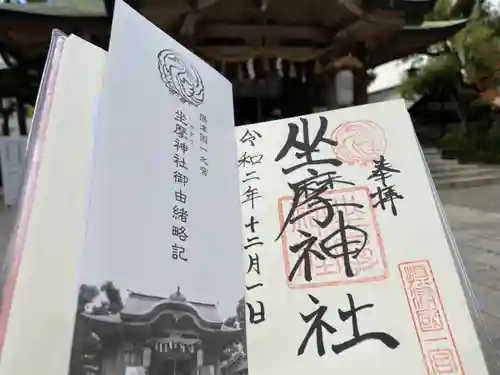 奉拝
坐摩神社
令和二年十二月一日
摂津国一之宮
坐摩神社御由緒略記